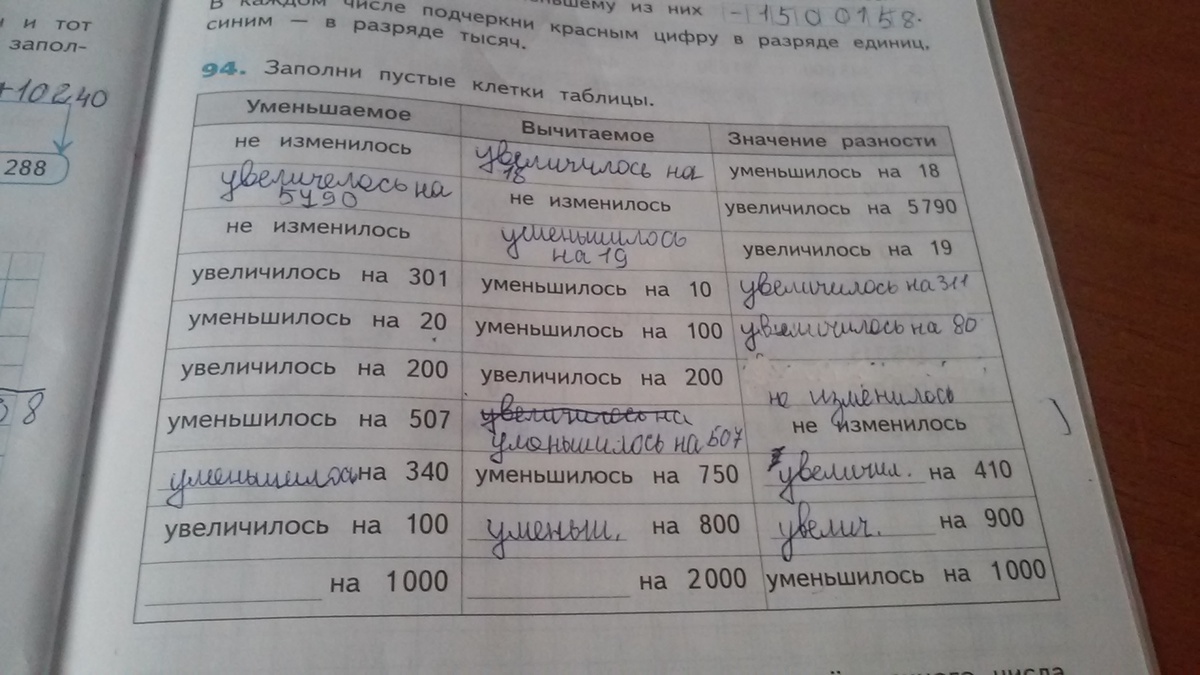 и тот
запол-
+10240
288
8
из них -1500158.
В каждом числе подчеркни красным цифру в разряде единиц,
синим — в разряде тысяч.
94. Заполни пустые клетки таблицы.
Уменьшаемое Вычитаемое Значение разности
не изменилось увеличилось на 18 уменьшилось на 18
увеличелось на 5790 не изменилось увеличилось на 5790
не изменилось уменьшилось на 19 увеличилось на 19
увеличилось на 301 уменьшилось на 10 увеличилось на 311
уменьшилось на 20 уменьшилось на 100 увеличилось на 80
увеличилось на 200 увеличилось на 200 не изменилось
уменьшилось на 507 увеличилось на уменьшилось на 507 не изменилось
уменьшилось на 340 уменьшилось на 750 увеличил. на 410
увеличилось на 100 уменьш. на 800 увелич. на 900
на 1000 на 2000 уменьшилось на 1000
числа